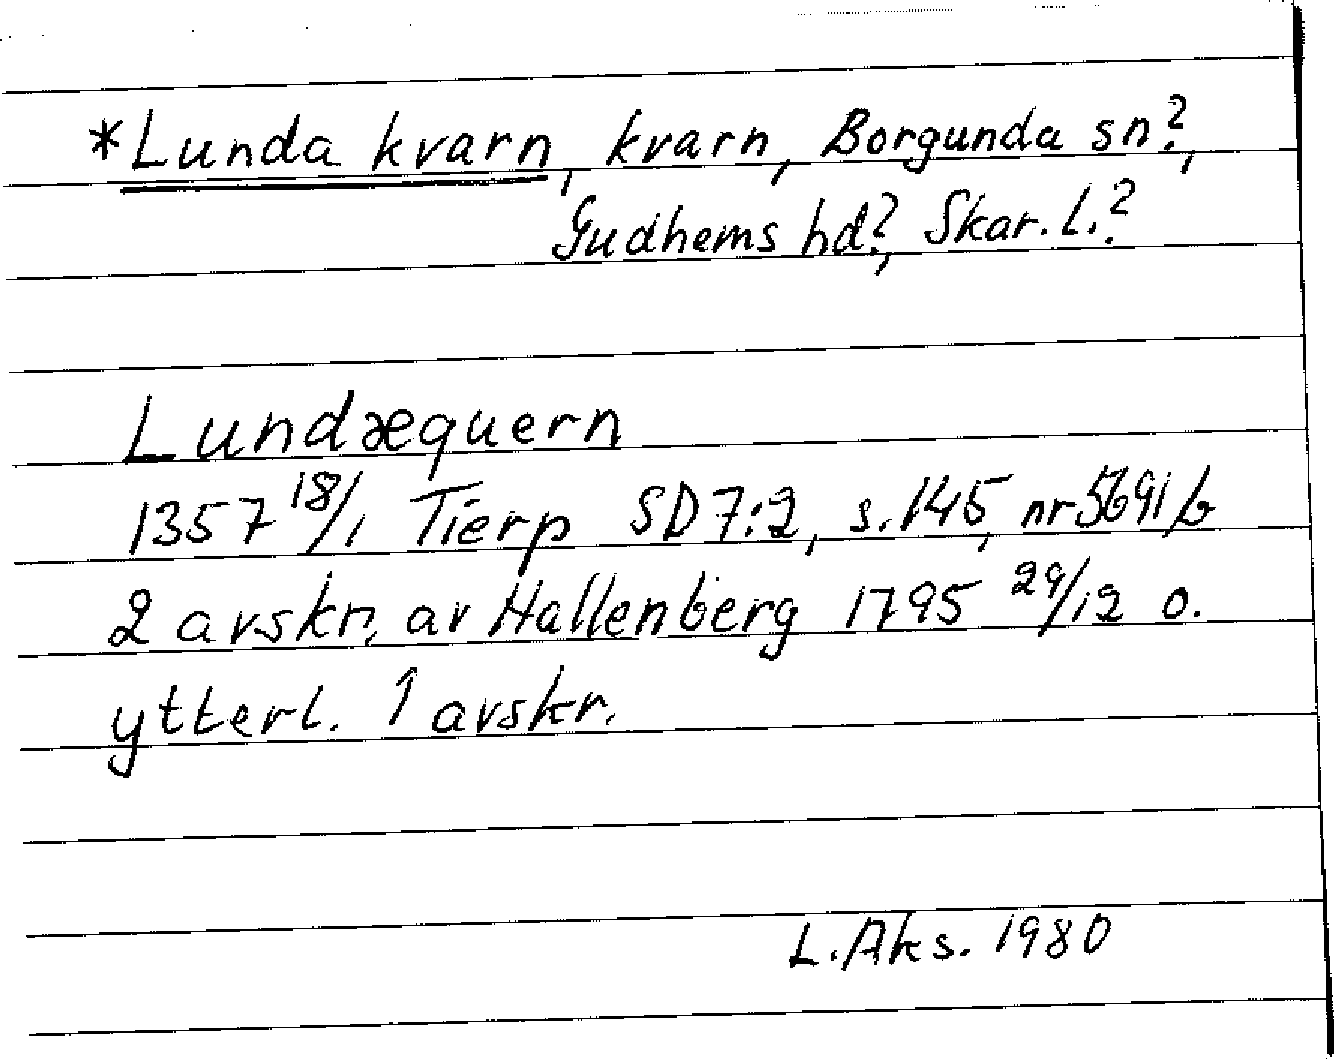 *Lunda kvarn, kvarn, Borgunda sn?,
Gudhems hd?, Skar. l.?
Lundæquern
1357 18/1 Tierp SD 7:2, s. 145, nr 5691 b
2 avskr. av Hallenberg 1795 29/12 o.
ytterl. 1 avskr.
L. Aks. 1980